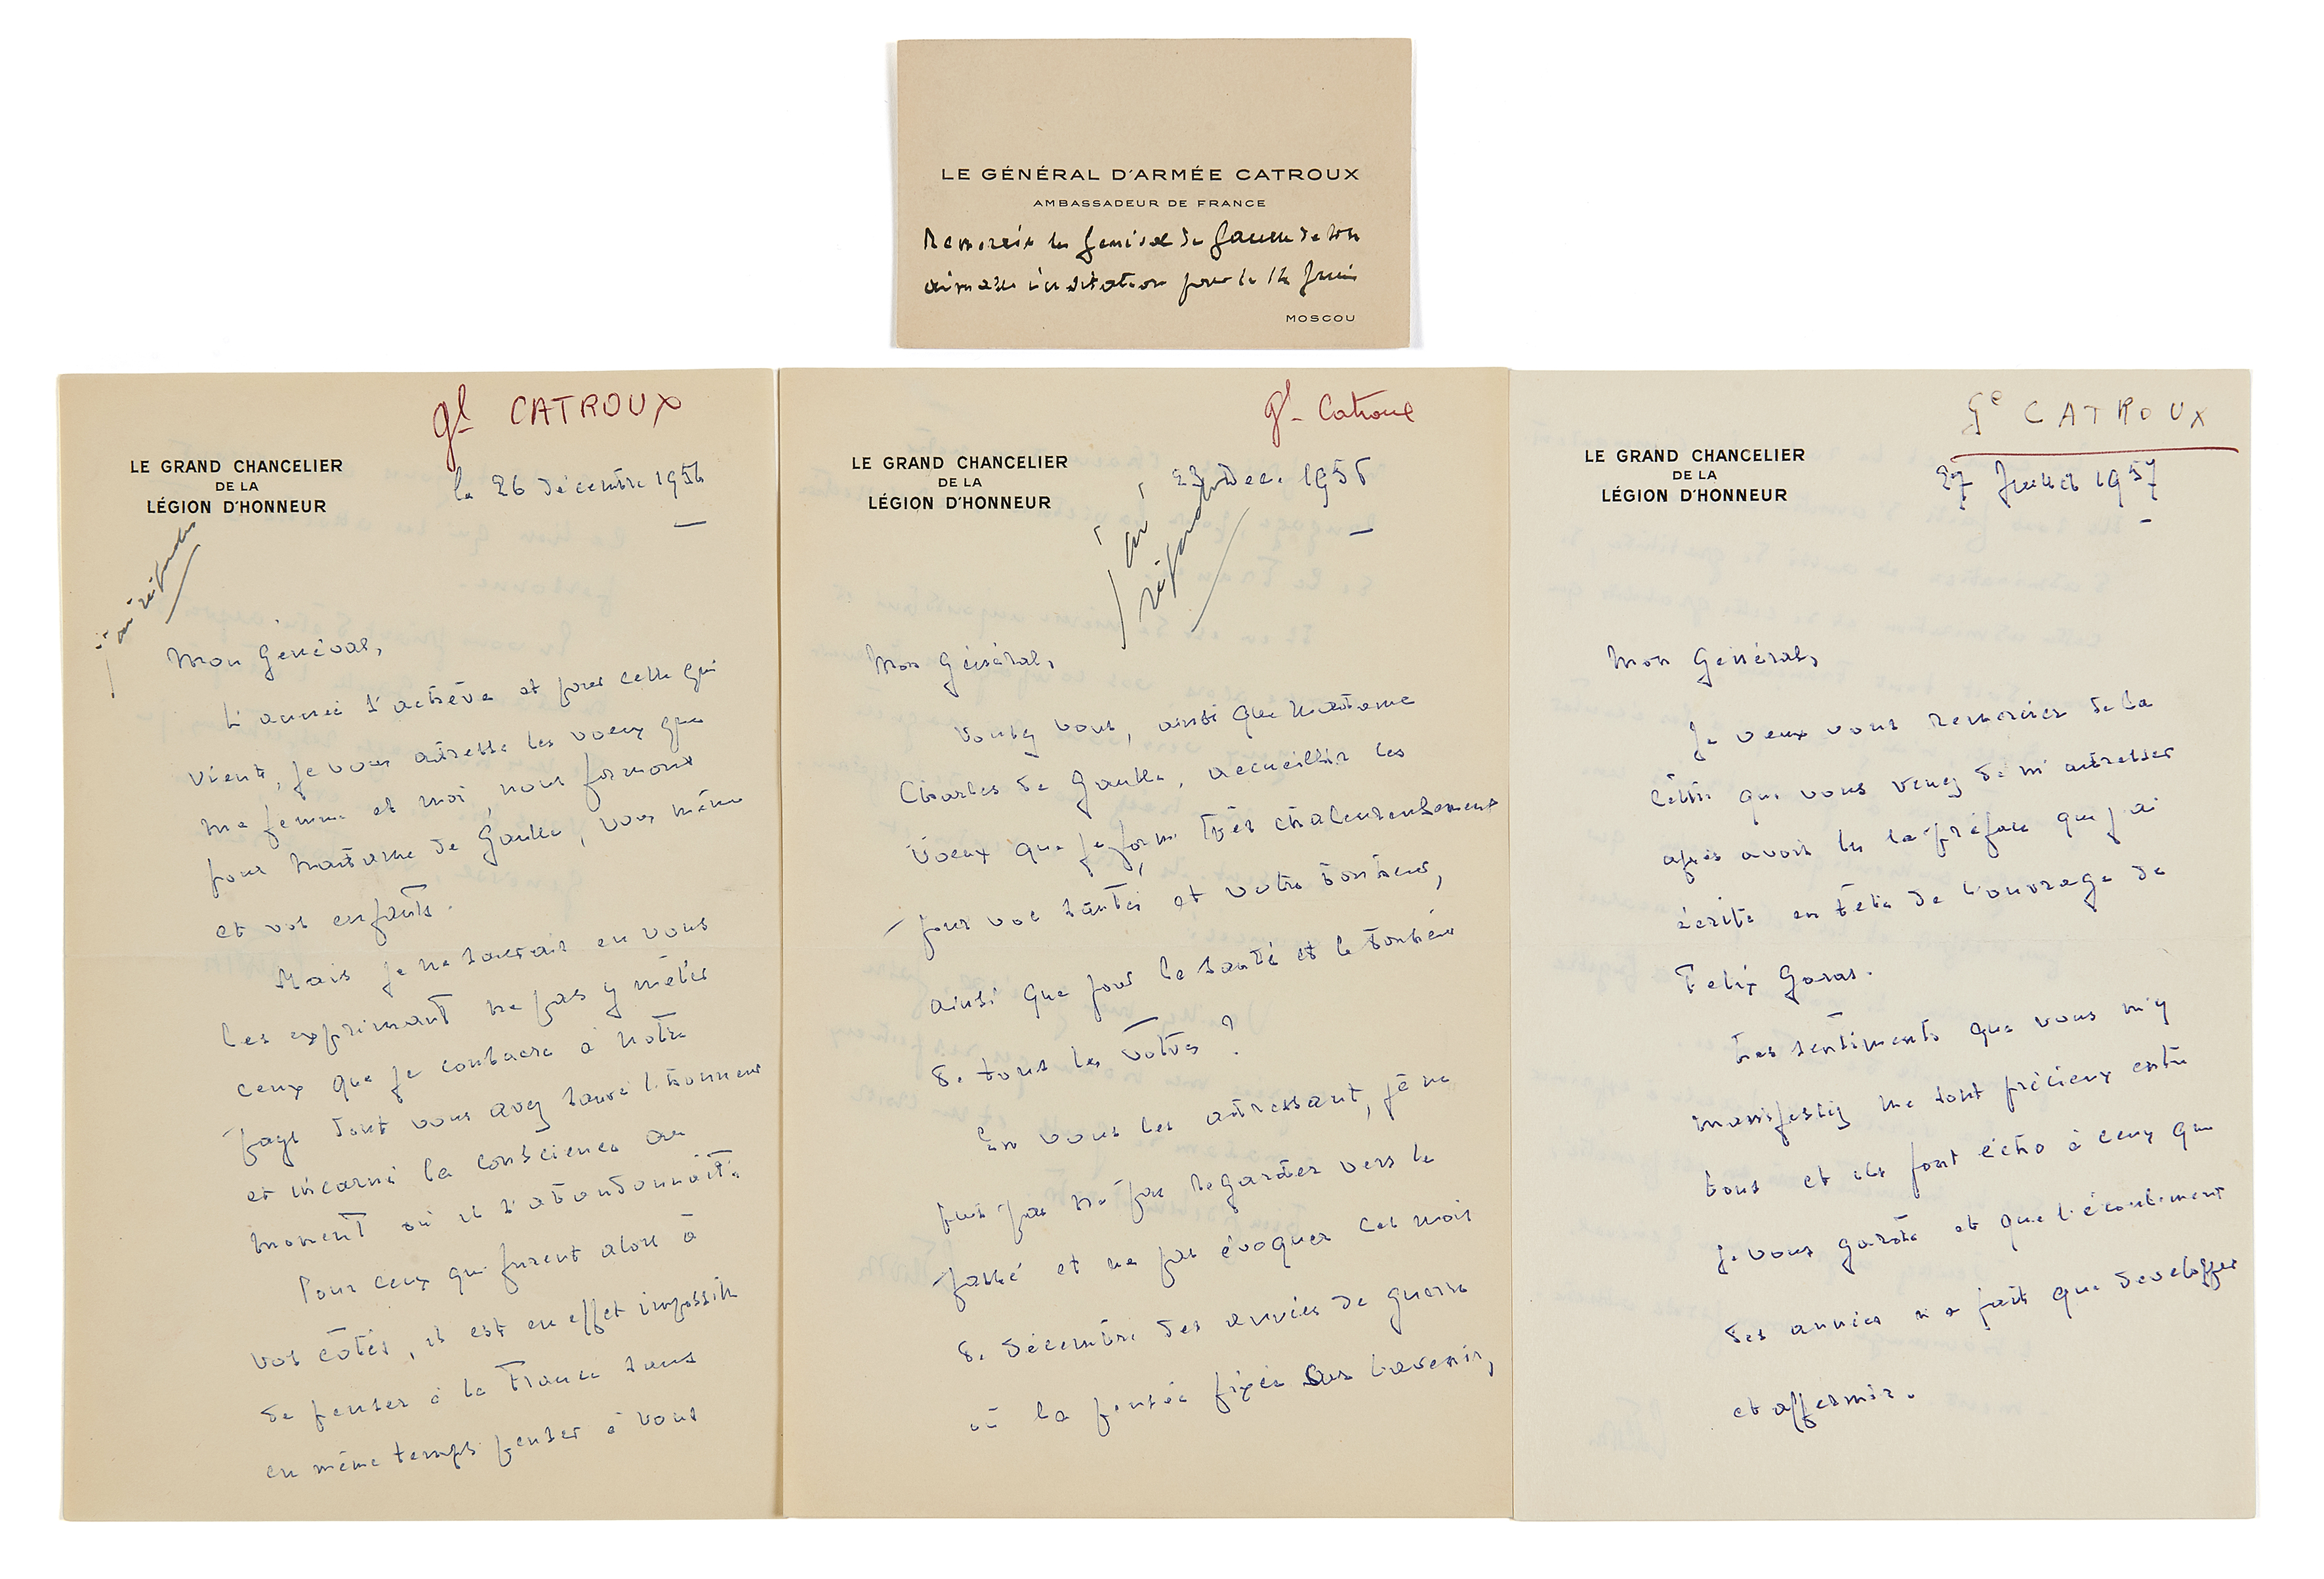 LE GÉNÉRAL D'ARMÉE CATROUX
AMBASSADEUR DE FRANCE
Remercie le Général de Gaulle de son
aimable invitation pour le 14 Juin
MOSCOU
Gl CATROUX
LE GRAND CHANCELIER
DE LA
LÉGION D'HONNEUR
le 26 décembre 1956
j'ai répondu
Mon Général,
L'année s'achève et pour celle qui
vient, je vous adresse les voeux que
ma femme et moi, nous formons
pour Madame de Gaulle, vous même
et vos enfants.
Mais je ne saurais en vous
les exprimant ne pas y mêler
ceux que je consacre à notre
pays dont vous avez sauvé l'honneur
et incarné la conscience au
moment où il s'abandonnait.
Pour ceux qui furent alors à
vos côtés, il est en effet impossible
de penser à la France sans
en même temps penser à vous
Gl Catroux
LE GRAND CHANCELIER
DE LA
LÉGION D'HONNEUR
23 Dec. 1958
j'ai
répondu
Mon Général,
Voulez vous, ainsi que Madame
Charles de Gaulle, accueillir les
voeux que je forme très chaleureusement
pour vos santés et votre bonheur,
ainsi que pour la santé et le bonheur
de tous les vôtres ?
En vous les adressant, je ne
puis pas ne pas regarder vers le
passé et ne pas évoquer ces mois
de décembre des années de guerre
où la pensée fixée sur l'avenir,
Gl CATROUX
LE GRAND CHANCELIER
DE LA
LÉGION D'HONNEUR
27 Juillet 1957
Mon Général,
Je veux vous remercier de la
lettre que vous venez de m'adresser
après avoir lu la préface que j'ai
écrite en tête de l'ouvrage de
Felix Garas.
Les sentiments que vous m'y
manifestez me sont précieux entre
tous et ils font écho à ceux que
je vous garde et que l'écoulement
des années n'a fait que developper
et affermir.